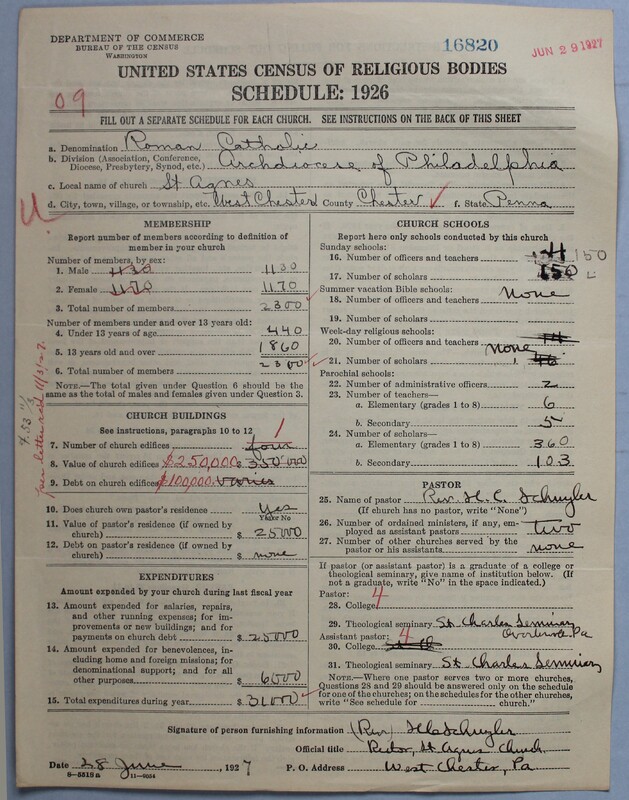 DEPARTMENT OF COMMERCE
BUREAU OF THE CENSUS
WASHINGTON
16820
JUN 29 1927
UNITED STATES CENSUS OF RELIGIOUS BODIES
SCHEDULE: 1926
09
FILL OUT A SEPARATE SCHEDULE FOR EACH CHURCH. SEE INSTRUCTIONS ON THE BACK OF THIS SHEET
a. Denomination Roman Catholic
b. Division (Association, Conference, Diocese, Presbytery, Synod, etc.) Archdiocese of Philadelphia
c. Local name of church St Agnes
d. City, town, village, or township, etc. West Chester County Chester f. State Penna
MEMBERSHIP
Report number of members according to definition of
member in your church
Number of members, by sex:
1. Male 1130 1130
2. Female 1170 1170
3. Total number of members 2300
Number of members under and over 13 years old:
4. Under 13 years of age 440
5. 13 years old and over 1860
6. Total number of members 2300
NOTE.—The total given under Question 6 should be the
same as the total of males and females given under Question 3.
CHURCH BUILDINGS
See instructions, paragraphs 10 to 12
7. Number of church edifices four 1
8. Value of church edifices $250,000 $ 350 000
9. Debt on church edifices $100,000 varies
10. Does church own pastor's residence Yes
Yes or No
11. Value of pastor's residence (if owned by
church) $ 25000
12. Debt on pastor's residence (if owned by
church) $ none
EXPENDITURES
Amount expended by your church during last fiscal year
13. Amount expended for salaries, repairs,
and other running expenses; for im-
provements or new buildings; and for
payments on church debt $ 25000
14. Amount expended for benevolences,
including home and foreign missions; for
denominational support; and for all
other purposes $ 6000
15. Total expenditures during year $ 31000
CHURCH SCHOOLS
Report here only schools conducted by this church
Sunday schools:
16. Number of officers and teachers 150
17. Number of scholars 150
Summer vacation Bible schools:
18. Number of officers and teachers None
19. Number of scholars
Week-day religious schools:
20. Number of officers and teachers 14
none
21. Number of scholars
Parochial schools:
22. Number of administrative officers 2
23. Number of teachers—
a. Elementary (grades 1 to 8) 6
b. Secondary 5
24. Number of scholars—
a. Elementary (grades 1 to 8) 360
b. Secondary 103
PASTOR
25. Name of pastor Rev. H. C. Schuyler
(If church has no pastor, write "None")
26. Number of ordained ministers, if any, em-
ployed as assistant pastors two
27. Number of other churches served by the
pastor or his assistants none
If pastor (or assistant pastor) is a graduate of a college or
theological seminary, give name of institution below. (If
not a graduate, write "No" in the space indicated.)
Pastor:
28. College 4
29. Theological seminary St. Charles Seminary
Overbrook, Pa
Assistant pastor:
30. College 4
31. Theological seminary St Charles Seminary
NOTE.—Where one pastor serves two or more churches,
Questions 28 and 29 should be answered only on the schedule
for one of the churches; on the schedules for the other churches,
write "See schedule for church."
Signature of person furnishing information (Rev) H C Schuyler
Official title Rector, St. Agnes Church
Date 28 June, 1927 P. O. Address West Chester, Pa
8-5518a 11-9054